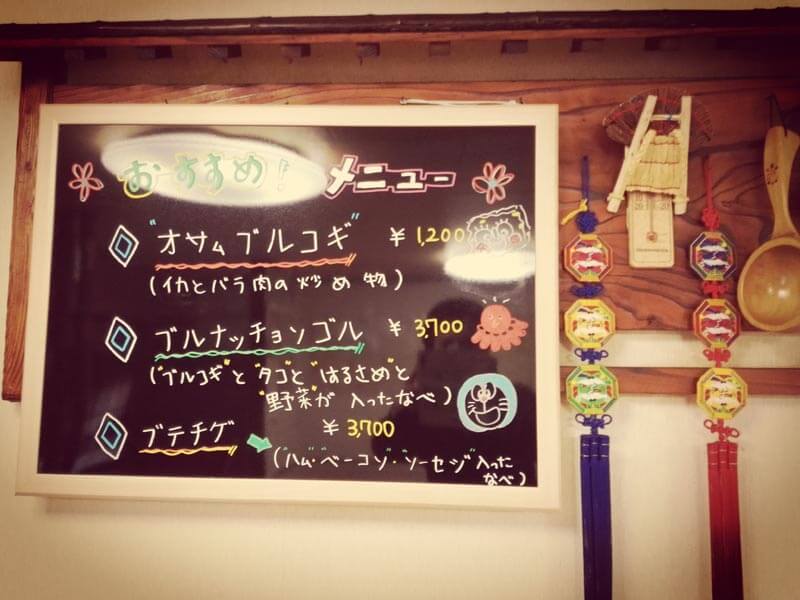 おすすめ! メニュー
"オサムブルコギ" ¥1,200
(イカとバラ肉の炒め物)
ブルナッチョンゴル ¥3,700
("ブルコギ"と"タコ"と"はるさめ"と
"野菜"が入ったなべ)
ブテチゲ ¥3,700
("ハム・ベーコン・ソーセジ"入った
なべ)